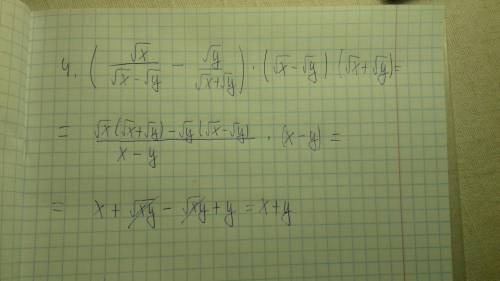 4. ( √x / (√x - √y) - √y / (√x+√y) ) · (√x - √y) (√x+√y) =
= (√x (√x+√y) - √y (√x - √y)) / (x - y) · (x - y) =
= x + √xy - √xy + y = x + y